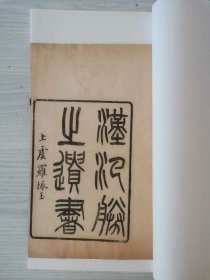 漢氾勝
之遺書
上虞羅振玉